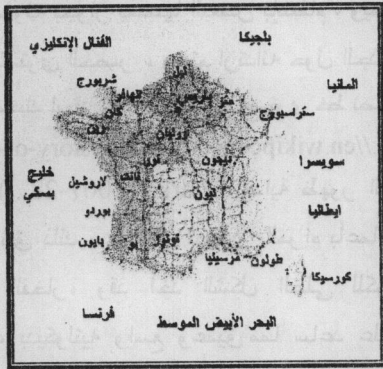 القنال الإنكليزي
بلجيكا
ليل
شربورج
لوهافر
المانيا
كان
باريس
متز
ستراسبورج
رن
اورليان
سويسرا
خليج
بسكي
تور
ديجون
نانت
لاروشيل
ليون
ايطاليا
بوردو
بايون
بو
تولوز
مرسيليا
طولون
كورسيكا
فرنسا
البحر الأبيض المتوسط